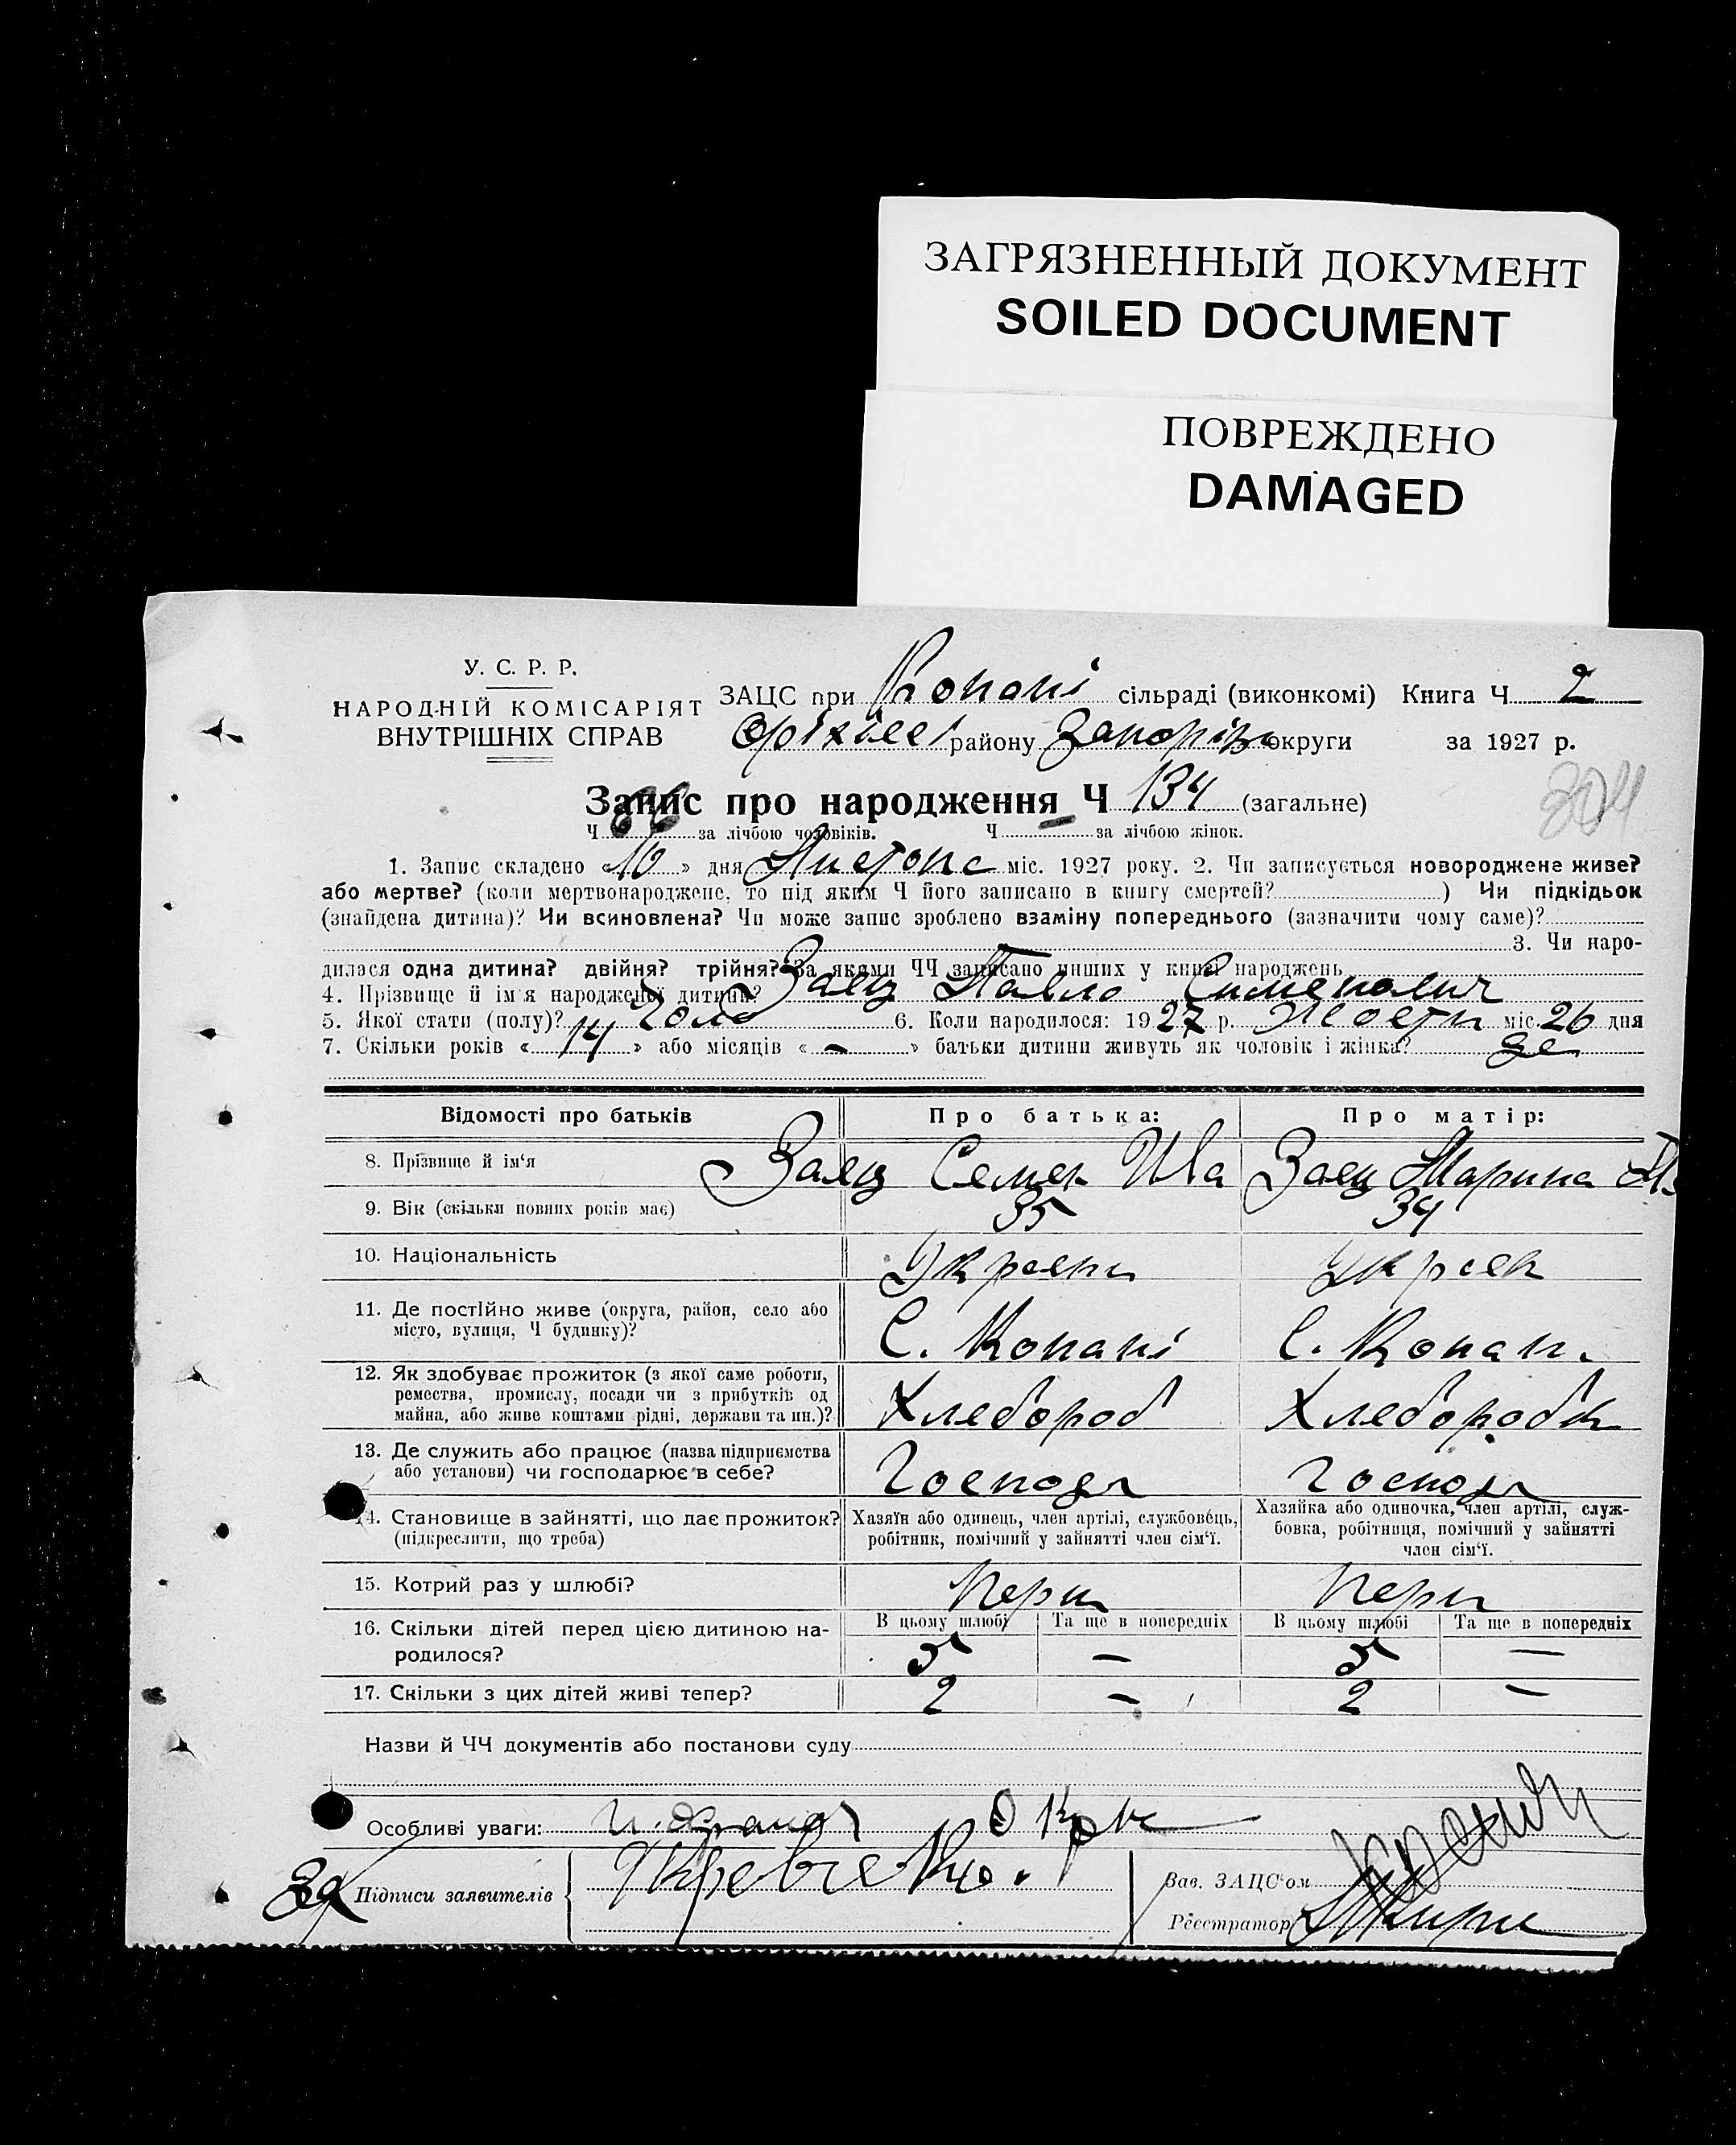 ЗАГРЯЗНЕННЫЙ ДОКУМЕНТ
SOILED DOCUMENT
ПОВРЕЖДЕНО
DAMAGED
У. С. Р. Р.
НАРОДНІЙ КОМІСАРІЯТ
ВНУТРІШНІХ СПРАВ
ЗАЦС при Копані сільраді (виконкомі) Книга Ч 2
Оріхівс району Запоріз округи за 1927 р.
304
Запис про народження Ч 134 (загальне)
Ч 66 за лічбою чоловіків. Ч — за лічбою жінок.
1. Запис складено «10» дня Листопа міс. 1927 року. 2. Чи записується новороджене живе?
або мертве? (коли мертвонароджене, то під яким Ч його записано в книгу смертей? ) Чи підкідьок
(знайдена дитина)? Чи всиновлена? Чи може запис зроблено взаміну попереднього (зазначити чому саме)?
3. Чи наро-
дилася одна дитина? двійня? трійня? За якими ЧЧ записано инших у книзі народжень
4. Прізвище й ім'я народженої дитини? Заец Павло Сименович
5. Якої стати (полу)? Чоло 6. Коли народилося: 1927 р. Жовтн міс. 26 дня
7. Скільки років «14» або місяців «-» батьки дитини живуть як чоловік і жінка? да
Відомості про батьків Про батька: Про матір:
8. Прізвище й ім'я Заец Семен Ива Заец Марина
9. Вік (скільки повних років має) 35 34
10. Національність Украени Украен
11. Де постійно живе (округа, район, село або
місто, вулиця, Ч будинку)? С. Копані С. Копан.
12. Як здобуває прожиток (з якої саме роботи,
ремества, промислу, посади чи з прибутків од
майна, або живе коштами рідні, держави та ин.)? Хлебороб Хлеборобк
13. Де служить або працює (назва підприємства
або установи) чи господарює в себе? Господ Господ
14. Становище в зайнятті, що дає прожиток?
(підкреслити, що треба)
Хазяїн або одинець, член артілі, службовець,
робітник, помічний у зайнятті член сім'ї.
Хазяйка або одиночка, член артілі, служ-
бовка, робітниця, помічний у зайнятті
член сім'ї.
15. Котрий раз у шлюбі? Перш Перш
В цьому шлюбі Та ще в попередніх В цьому шлюбі Та ще в попередніх
16. Скільки дітей перед цією дитиною на-
родилося? 5 — 5 —
17. Скільки з цих дітей живі тепер? 2 - 2 -
Назви й ЧЧ документів або постанови суду
Особливі уваги:
За Підписи заявителів
Зав. ЗАЦС'ом
Реєстратор